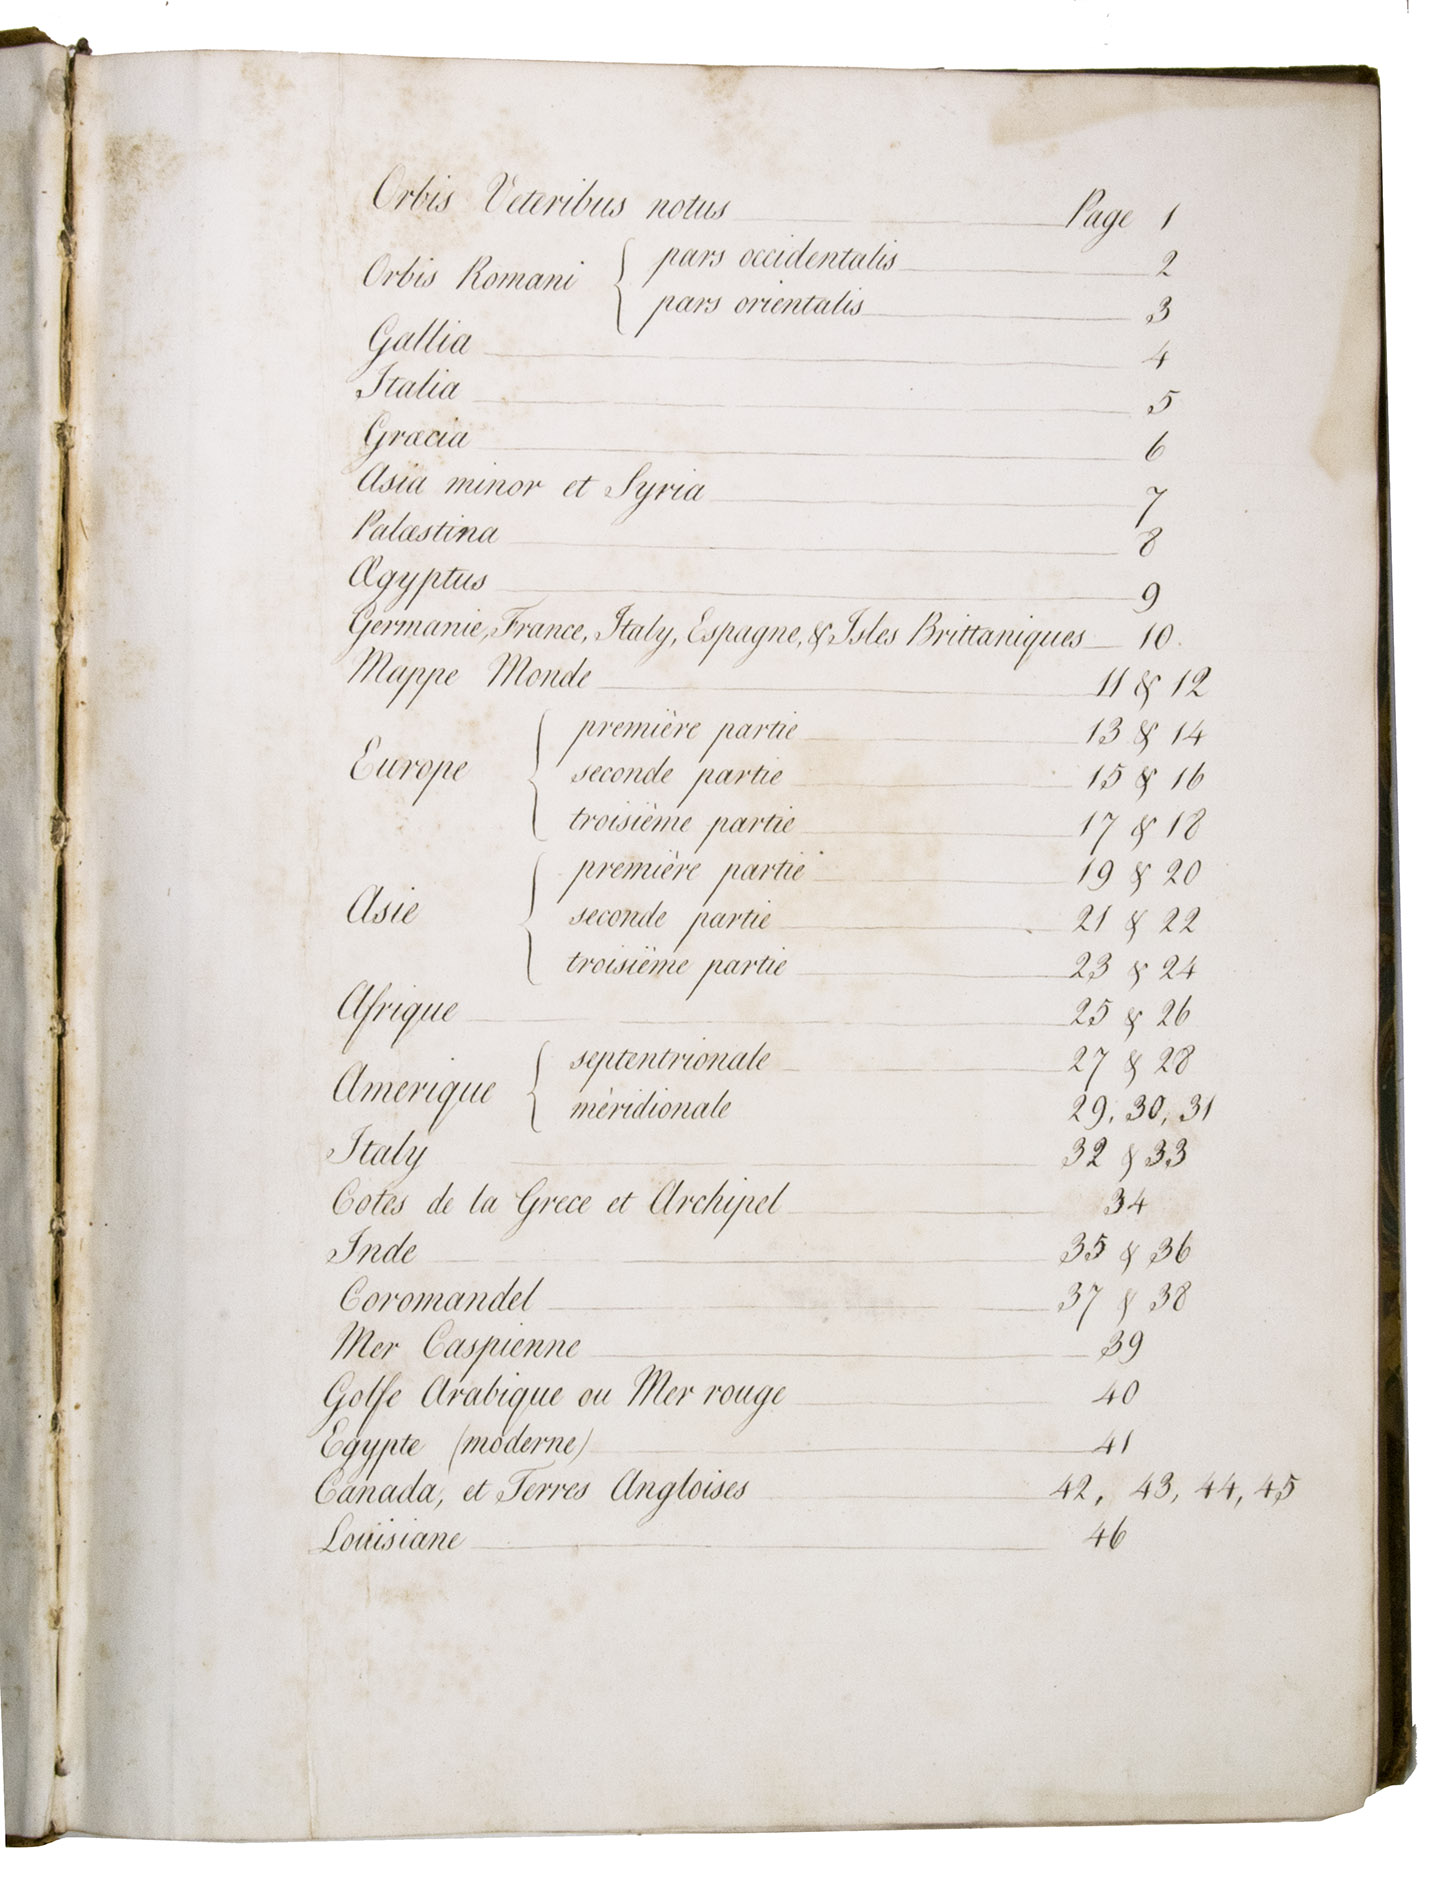 Orbis Veteribus notus Page 1
Orbis Romani { pars occidentalis 2
pars orientalis 3
Gallia 4
Italia 5
Græcia 6
Asia minor et Syria 7
Palæstina 8
Ægyptus 9
Germanie, France, Italy, Espagne, & Isles Brittaniques 10.
Mappe Monde 11 & 12
Europe { première partie 13 & 14
seconde partie 15 & 16
troisième partie 17 & 18
Asie { première partie 19 & 20
seconde partie 21 & 22
troisième partie 23 & 24
Afrique 25 & 26
Amerique { septentrionale 27 & 28
méridionale 29, 30, 31
Italy 32 & 33
Cotes de la Grece et Archipel 34
Inde 35 & 36
Coromandel 37 & 38
Mer Caspienne 39
Golfe Arabique ou Mer rouge 40
Egypte (moderne) 41
Canada, et Terres Angloises 42, 43, 44, 45
Louisiane 46